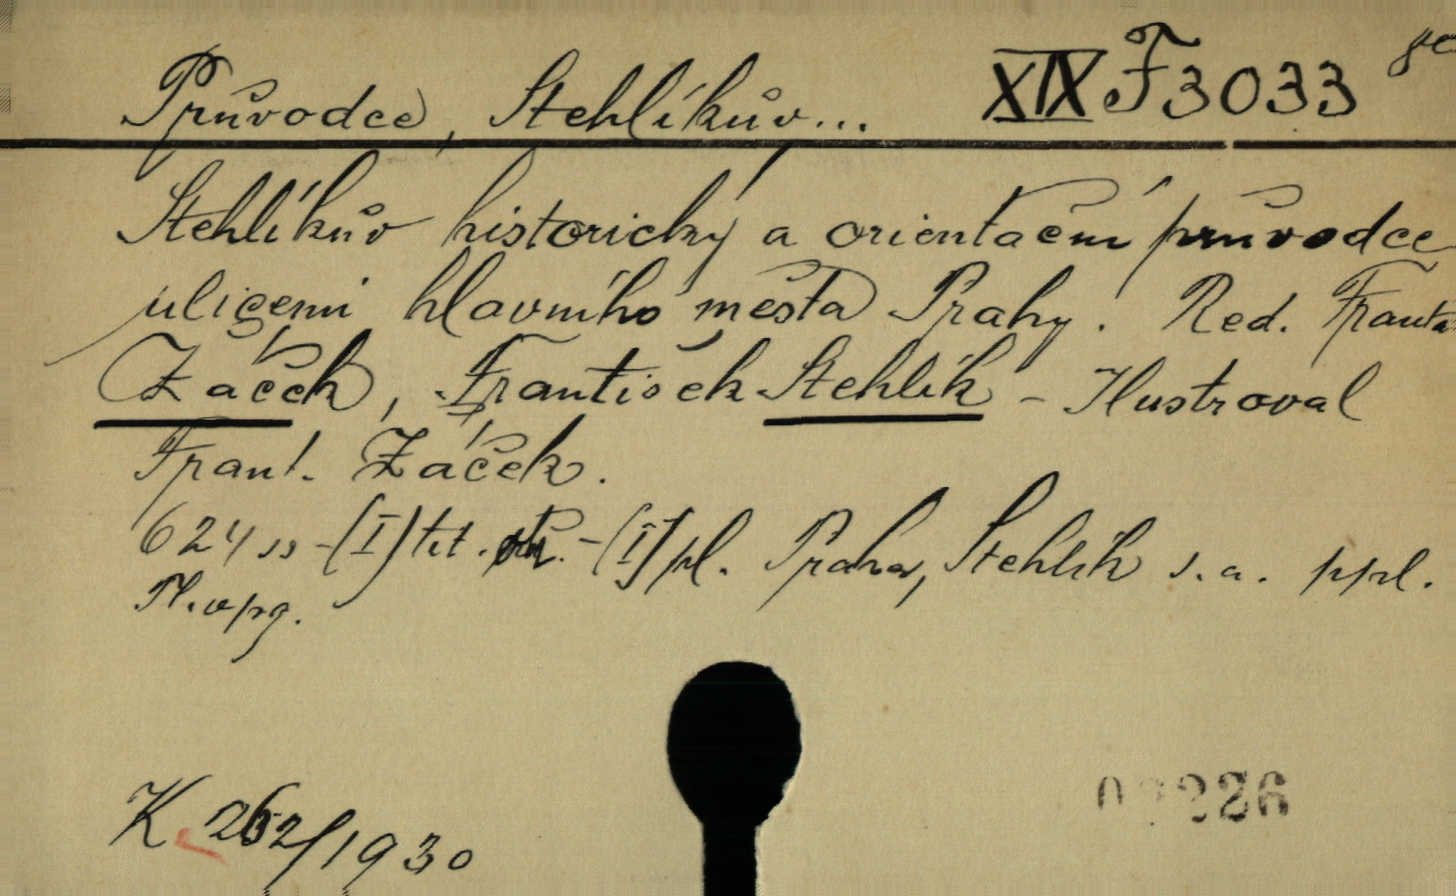 Průvodce, Stehlíkův... XIX F 3033
Stehlíkův historický a orientační průvodce
ulicemi hlavního města Prahy. Red. Franta
Žáček, František Stehlík - Ilustroval
Frant. Žáček.
624 ss -(I) tit. -(I) pl. Praha, Stehlík s.a. ppl.
Pl. v pg.
K 262/1930